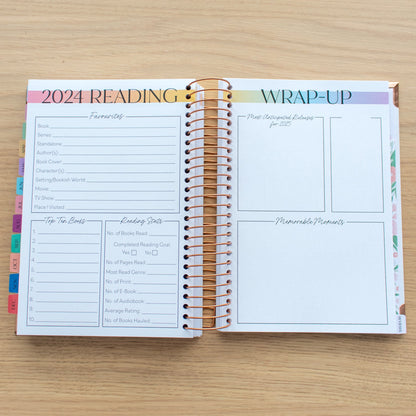 2024 READING WRAP-UP
Favourites
Book:
Series:
Standalone:
Author(s):
Book Cover:
Character(s):
Setting/Bookish World:
Movie:
TV Show:
Place I Visited:
Top Ten Books
1.
2.
3.
4.
5.
6.
7.
8.
9.
10.
Reading Stats
No. of Books Read:
Completed Reading Goal:
Yes No
No. of Pages Read:
Most Read Genre:
No. of Print:
No. of E-Book:
No. of Audiobook:
Average Rating:
No. of Books Hauled:
Most Anticipated Releases
for 2025
Memorable Moments
OCT
NOV
DEC